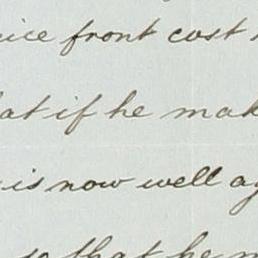 front cost
at if he mak
is now well ag
so that he m